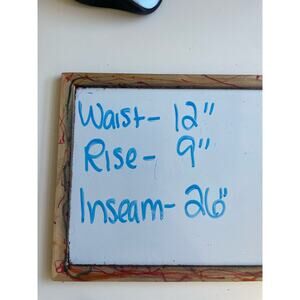 Waist- 12"
Rise- 9"
Inseam- 26"